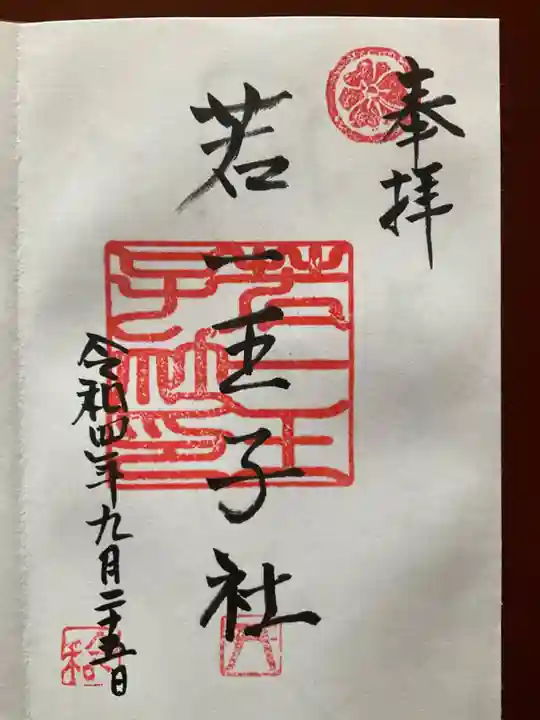 奉拝
若一王子社
令和四年九月二十五日